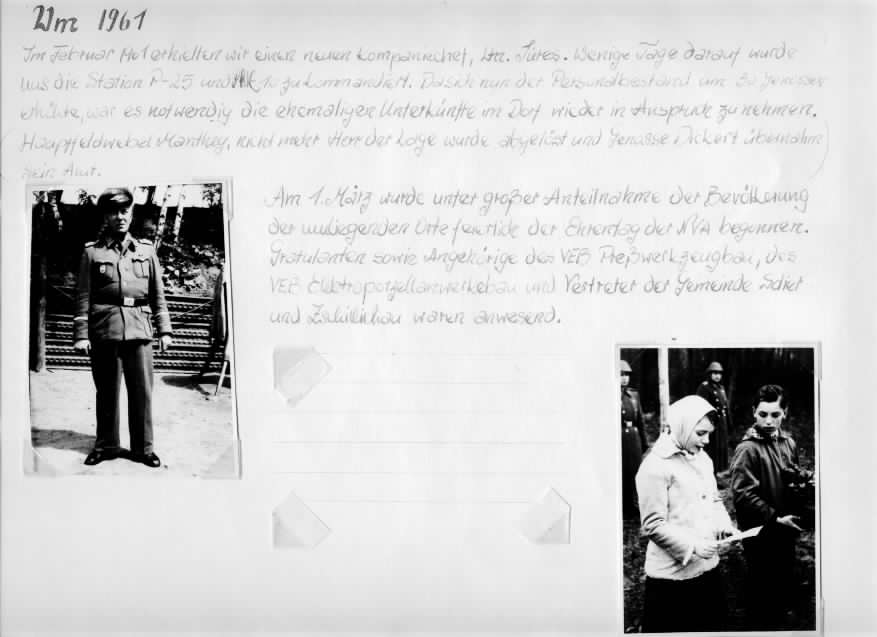 1961
Im Februar erhielten wir einen neuen Kompaniechef, Ltn. Wenige Tage darauf wurde
uns die Station P-25 und zukommandiert. Da sich nun der Personalbestand um Genossen
erhöhte, war es notwendig die ehemaligen Unterkünfte im Dorf wieder in Anspruch zu nehmen.
Hauptfeldwebel Manthey, nicht mehr Herr der Lage wurde abgelöst und Genosse Dickert übernahm
sein Amt.
Am 1. März wurde unter großer Anteilnahme der Bevölkerung
der umliegenden Orte feierlich der Ehrentag der NVA begonnen.
Gratulanten sowie Angehörige des VEB Preßwerkzeugbau, des
VEB und Vertreter der Gemeinde
und waren anwesend.